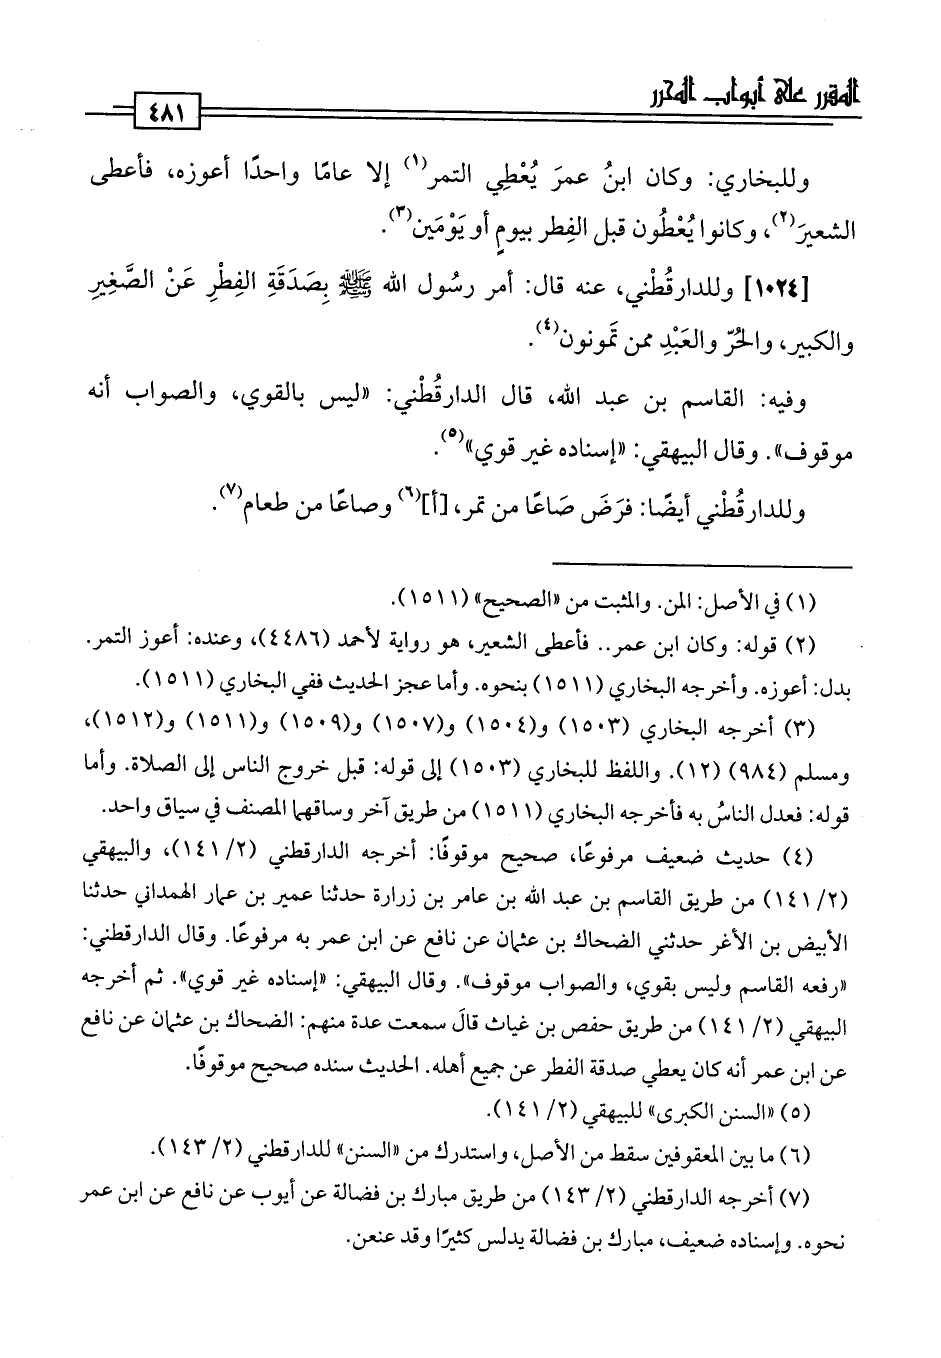 المقرر على أبواب المحرر
٤٨١
وللبخاري: وكان ابنُ عمرَ يُعْطِي التمر(١) إلا عامًا واحدًا أعوزه، فأعطى
الشعيرَ(٢)، وكانوا يُعْطُون قبل الفِطر بيومٍ أو يَوْمَين(٣).
[١٠٢٤] وللدارقُطْني، عنه قال: أمر رسُول الله ﷺ بِصَدَقَةِ الفِطْرِ عَنْ الصَّغِيرِ
والكبير، والحُرّ والعَبْدِ ممن تَمونون(٤).
وفيه: القاسم بن عبد الله، قال الدارقُطْني: «ليس بالقوي، والصواب أنه
موقوف». وقال البيهقي: «إسناده غير قوي»(٥).
وللدارقُطْني أيضًا: فرَضَ صَاعًا من تمر، [أ](٦) وصاعًا من طعام(٧).
(١) في الأصل: المن. والمثبت من «الصحيح» (١٥١١).
(٢) قوله: وكان ابن عمر.. فأعطى الشعير، هو رواية لأحمد (٤٤٨٦)، وعنده: أعوز التمر.
بدل: أعوزه. وأخرجه البخاري (١٥١١) بنحوه. وأما عجز الحديث ففي البخاري (١٥١١).
(٣) أخرجه البخاري (١٥٠٣) و(١٥٠٤) و(١٥٠٧) و(١٥٠٩) و(١٥١١) و(١٥١٢)،
ومسلم (٩٨٤) (١٢). واللفظ للبخاري (١٥٠٣) إلى قوله: قبل خروج الناس إلى الصلاة. وأما
قوله: فعدل الناسُ به فأخرجه البخاري (١٥١١) من طريق آخر وساقهما المصنف في سياق واحد.
(٤) حديث ضعيف مرفوعًا، صحيح موقوفًا: أخرجه الدارقطني (٢/ ١٤١)، والبيهقي
(٢/ ١٤١) من طريق القاسم بن عبد الله بن عامر بن زرارة حدثنا عمير بن عمار الهمداني حدثنا
الأبيض بن الأغر حدثني الضحاك بن عثمان عن نافع عن ابن عمر به مرفوعًا. وقال الدارقطني:
«رفعه القاسم وليس بقوي، والصواب موقوف». وقال البيهقي: «إسناده غير قوي». ثم أخرجه
البيهقي (٢/ ١٤١) من طريق حفص بن غياث قالَ سمعت عدة منهم: الضحاك بن عثمان عن نافع
عن ابن عمر أنه كان يعطي صدقة الفطر عن جميع أهله. الحديث سنده صحيح موقوفًا.
(٥) «السنن الكبرى» للبيهقي (٢/ ١٤١).
(٦) ما بين المعقوفين سقط من الأصل، واستدرك من «السنن» للدارقطني (٢/ ١٤٣).
(٧) أخرجه الدارقطني (٢/ ١٤٣) من طريق مبارك بن فضالة عن أيوب عن نافع عن ابن عمر
نحوه. وإسناده ضعيف، مبارك بن فضالة يدلس كثيرًا وقد عنعن.